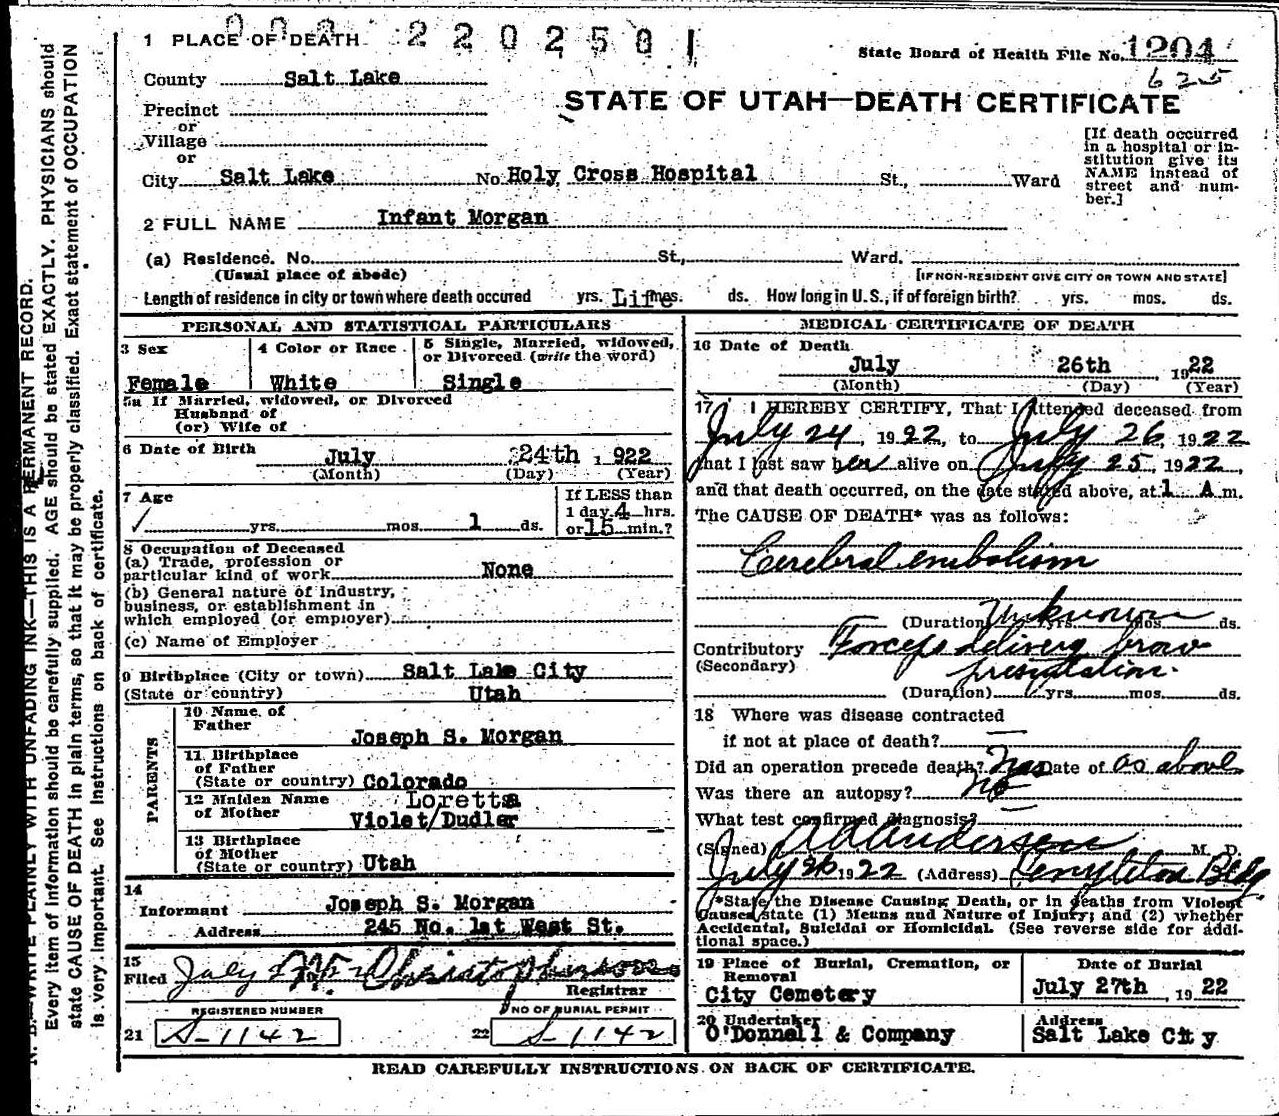 2202501
1 PLACE OF DEATH
State Board of Health File No. 1204
625
County Salt Lake
STATE OF UTAH—DEATH CERTIFICATE
Precinct
or
Village
or
City Salt Lake No. Holy Cross Hospital St., Ward
[If death occurred
in a hospital or in-
stitution give its
NAME instead of
street and num-
ber.]
2 FULL NAME Infant Morgan
(a) Residence. No. St., Ward.
(Usual place of abode) [IF NON-RESIDENT GIVE CITY OR TOWN AND STATE]
Length of residence in city or town where death occured yrs. Life mos. ds. How long in U.S., if of foreign birth? yrs. mos. ds.
PERSONAL AND STATISTICAL PARTICULARS
3 Sex
Female
4 Color or Race
White
5 Single, Married, widowed,
or Divorced (write the word)
Single
5a If Married, widowed, or Divorced
Husband of
(or) Wife of
6 Date of Birth July 24th, 922
(Month) (Day) (Year)
7 Age
yrs. mos. 1 ds.
If LESS than
1 day 4 hrs.
or 15 min.?
8 Occupation of Deceased
(a) Trade, profession or
particular kind of work None
(b) General nature of Industry,
business, or establishment in
which employed (or employer)
(c) Name of Employer
9 Birthplace (City or town) Salt Lake City
(State or country) Utah
PARENTS
10 Name of
Father
Joseph S. Morgan
11 Birthplace
of Father
(State or country) Colorado
12 Maiden Name Loretta
of Mother Violet/Dudler
13 Birthplace
of Mother
(State or country) Utah
14
Informant Joseph S. Morgan
Address 245 No. 1st West St.
15
Filed July
Registrar
REGISTERED NUMBER
21 S-1142
NO OF BURIAL PERMIT
22 S-1142
MEDICAL CERTIFICATE OF DEATH
16 Date of Death
July 26th 1922
(Month) (Day) (Year)
17 I HEREBY CERTIFY, That I attended deceased from
July 24, 1922, to July 26, 1922
that I last saw her alive on July 25, 1922,
and that death occurred, on the date stated above, at 1 A m.
The CAUSE OF DEATH* was as follows:
Cerebral embolism
(Duration) Unknown yrs. mos. ds.
Contributory Forceps delivery brow
(Secondary) presentation.
(Duration) yrs. mos. ds.
18 Where was disease contracted
if not at place of death?
Did an operation precede death? Yes Date of as above
Was there an autopsy? No
What test confirmed diagnosis?
(Signed) M. D.
July 26 1922 (Address) Templeton Bldg
*State the Disease Causing Death, or in deaths from Violent
Causes state (1) Means and Nature of Injury; and (2) whether
Accidental, Suicidal or Homicidal. (See reverse side for addi-
tional space.)
19 Place of Burial, Cremation, or
Removal
City Cemetery
Date of Burial
July 27th, 1922
20 Undertaker
O'Donnell & Company
Address
Salt Lake City
READ CAREFULLY INSTRUCTIONS ON BACK OF CERTIFICATE.
N. B.—WRITE PLAINLY WITH UNFADING INK—THIS IS A PERMANENT RECORD.
Every item of information should be carefully supplied. AGE should be stated EXACTLY. PHYSICIANS should
state CAUSE OF DEATH in plain terms, so that it may be properly classified. Exact statement of OCCUPATION
is very important. See Instructions on back of certificate.